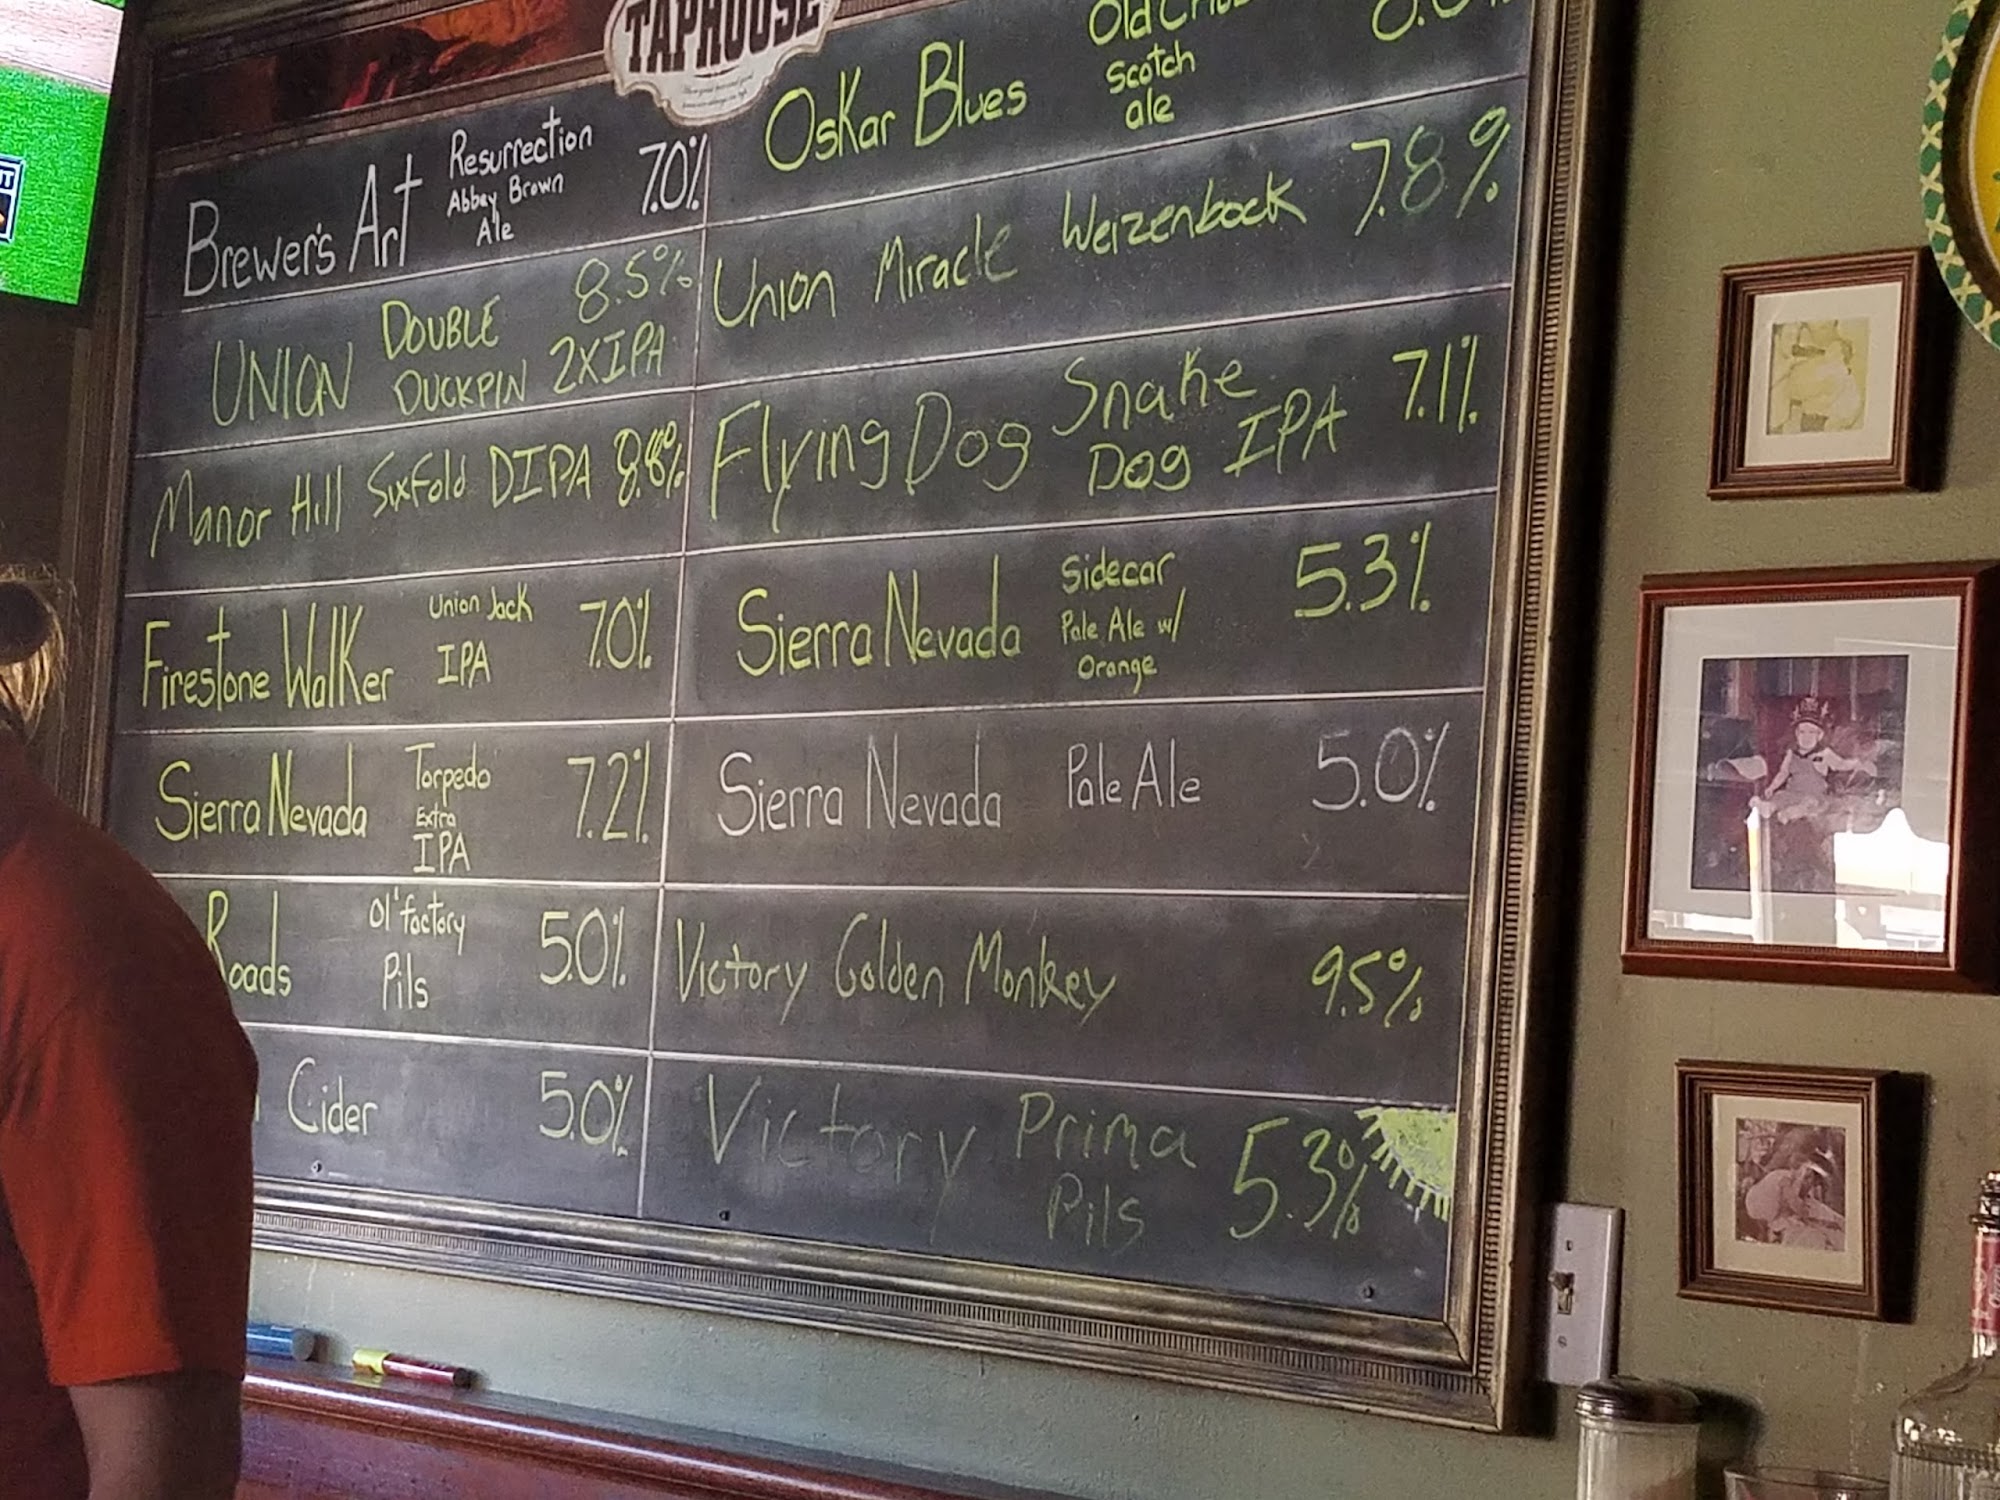 TAPHOUSE
Brewer's Art Resurrection 7.0%
Abbey Brown
Ale
UNION DOUBLE 8.5%
DUCKPIN 2XIPA
Manor Hill Sixfold DIPA 8.8%
Firestone Walker Union Jack 7.0%
IPA
Sierra Nevada Torpedo 7.2%
Extra
IPA
Roads Ol'factory 5.0%
Pils
Cider 5.0%
Oskar Blues Old
Scotch
ale
Union Miracle Weizenbock 7.8%
Flying Dog Snake 7.1%
Dog IPA
Sierra Nevada Sidecar 5.3%
Pale Ale w/
Orange
Sierra Nevada Pale Ale 5.0%
Victory Golden Monkey 9.5%
Victory Prima 5.3%
Pils